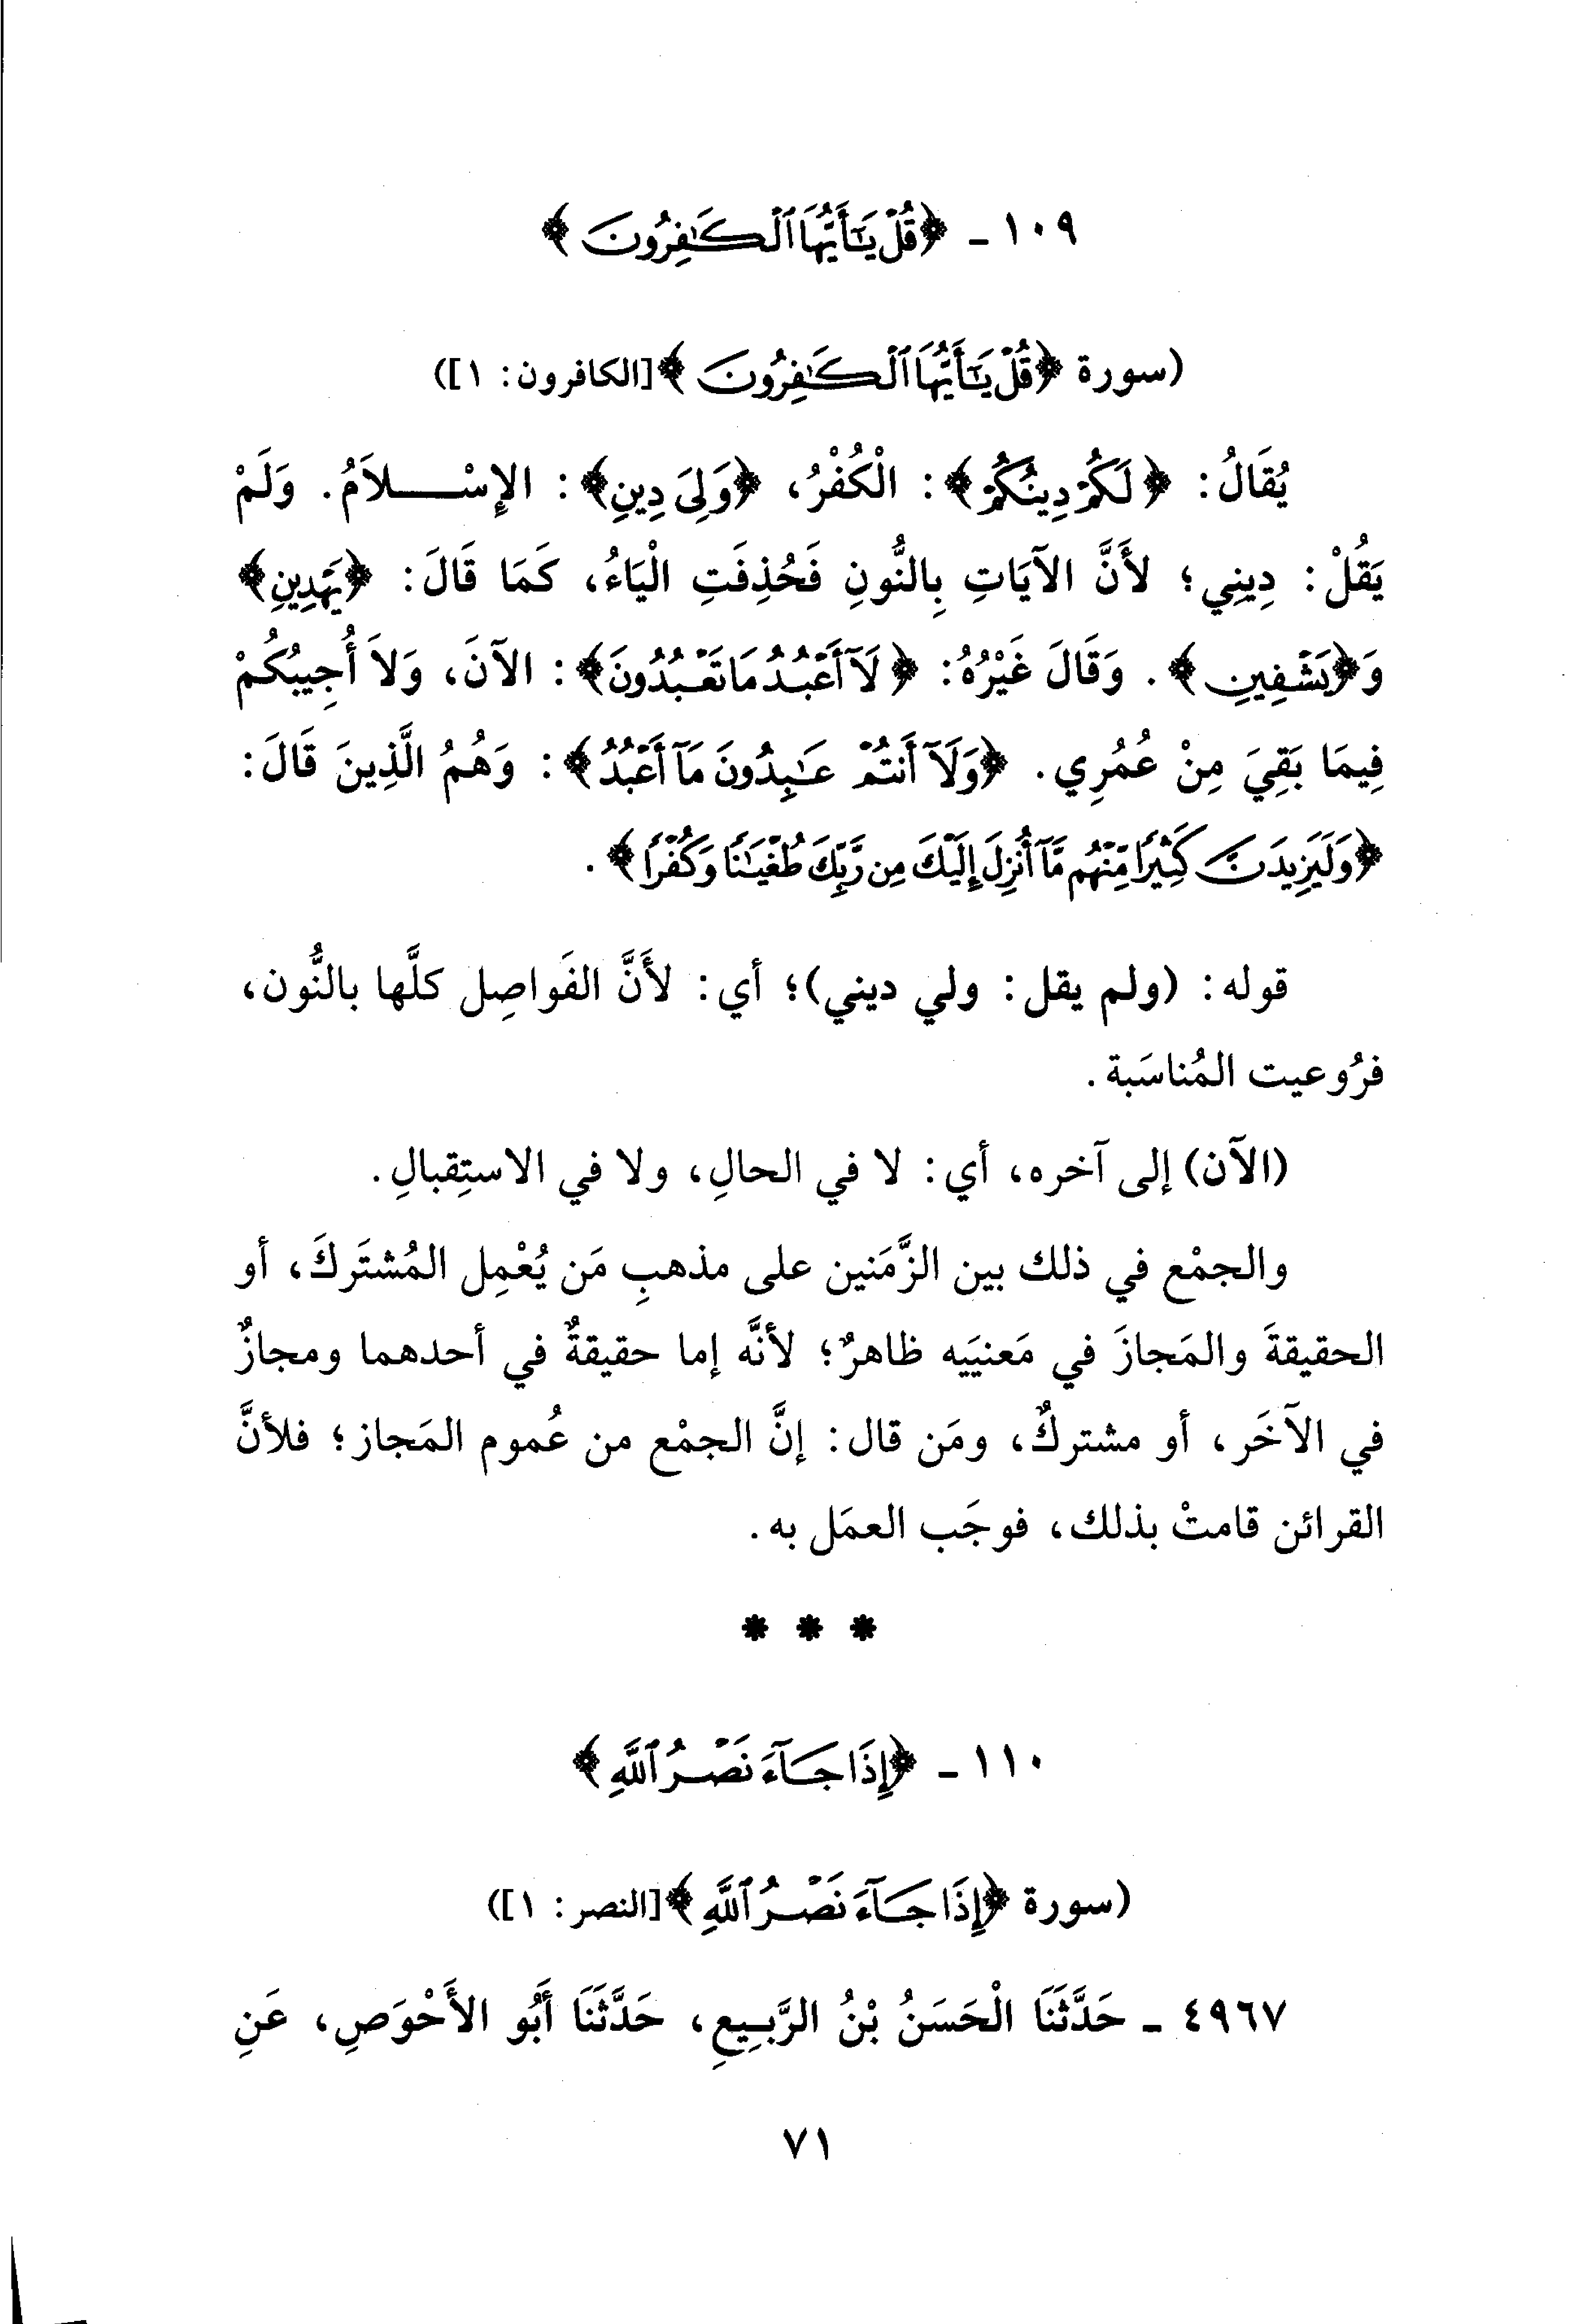 ١٠٩ ـ ﴿قُلْ يَٰٓأَيُّهَا ٱلْكَٰفِرُونَ﴾
(سورة ﴿قُلْ يَٰٓأَيُّهَا ٱلْكَٰفِرُونَ﴾ [الكافرون: ١])
يُقَالُ: ﴿لَكُمْ دِينُكُمْ﴾: الْكُفْرُ، ﴿وَلِىَ دِينِ﴾: الإِسْـــلاَمُ. وَلَمْ
يَقُلْ: دِينِي؛ لأَنَّ الآيَاتِ بِالنُّونِ فَحُذِفَتِ الْيَاءُ، كَمَا قَالَ: ﴿يَهْدِينِ﴾
وَ﴿يَشْفِينِ﴾. وَقَالَ غَيْرُهُ: ﴿لَآ أَعْبُدُ مَا تَعْبُدُونَ﴾: الآنَ، وَلاَ أُجِيبُكُمْ
فِيمَا بَقِيَ مِنْ عُمُرِي. ﴿وَلَآ أَنتُمْ عَٰبِدُونَ مَآ أَعْبُدُ﴾: وَهُمُ الَّذِينَ قَالَ:
﴿وَلَيَزِيدَنَّ كَثِيرًا مِّنْهُم مَّآ أُنزِلَ إِلَيْكَ مِن رَّبِّكَ طُغْيَٰنًا وَكُفْرًا﴾.
قوله: (ولم يقل: ولي ديني)؛ أي: لأَنَّ الفَواصِل كلَّها بالنُّون،
فرُوعيت المُناسَبة.
(الآن) إلى آخره، أي: لا في الحالِ، ولا في الاستِقبالِ.
والجمْع في ذلك بين الزَّمَنين على مذهبِ مَن يُعْمِل المُشتَركَ، أو
الحقيقةَ والمَجازَ في مَعنيَيه ظاهرٌ؛ لأنَّه إما حقيقةٌ في أحدهما ومجازٌ
في الآخَر، أو مشتركٌ، ومَن قال: إنَّ الجمْع من عُموم المَجاز؛ فلأنَّ
القرائن قامتْ بذلك، فوجَب العمَل به.
* * *
١١٠ ـ ﴿إِذَا جَآءَ نَصْرُ ٱللَّهِ﴾
(سورة ﴿إِذَا جَآءَ نَصْرُ ٱللَّهِ﴾ [النصر: ١])
٤٩٦٧ ـ حَدَّثَنَا الْحَسَنُ بْنُ الرَّبِيعِ، حَدَّثَنَا أَبُو الأَحْوَصِ، عَنِ
٧١